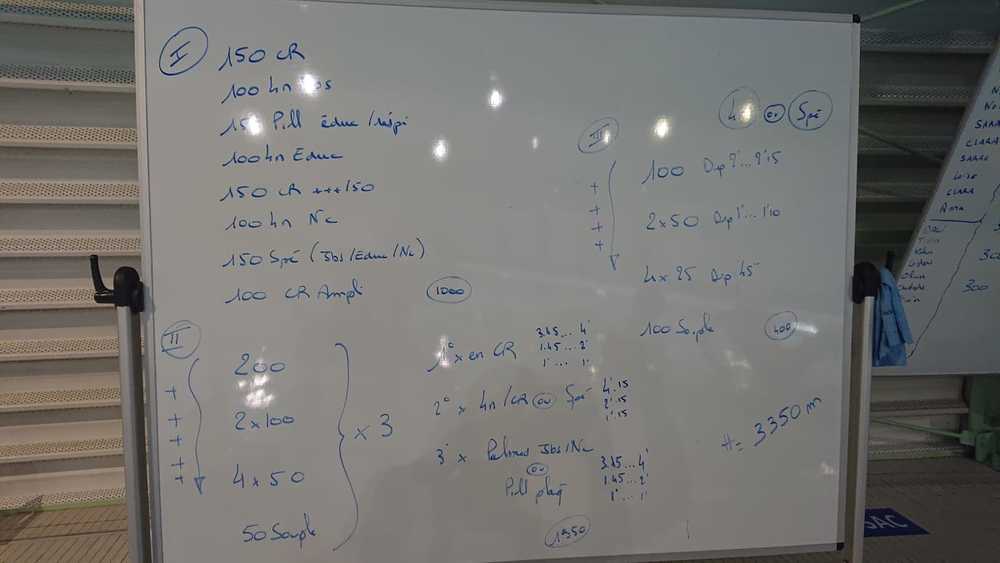 I
150 CR
100 4n Jbs
150 Pull éduc /
100 4n Educ
150 CR +++/50
100 4n Nc
150 Spé (Jbs/Educ/Nc)
100 CR Ampli
1000
II
200
2 x 100
4 x 50
50 Souple
x 3
+
+
+
+
+
1° x en CR
3.45 ... 4'
1.45 ... 2'
1' ... 1'
2° x 4n/CR ou Spé
4'.15
2'.15
1'.15
3° x Jbs/Nc
ou
Pull plaq
3.45 ... 4'
1.45 ... 2'
1' ... 1'
1950
III
4n ou Spé
+
+
+
+
100 Dep 2' ... 2'15
2x50 Dep 1' ... 1'10
4x25 Dep 45"
100 Souple
400
H = 3350 m
SARAH
CLARA
CLARA
Anna
300
SAC